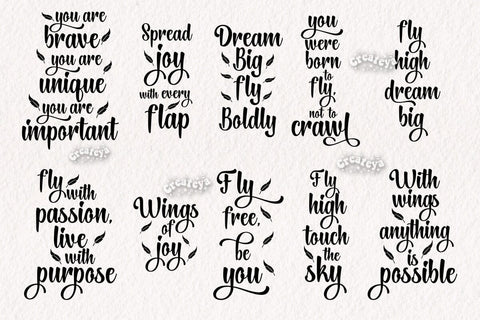 you are
brave
you are
unique
you are
important
Spread
joy
with every
flap
Dream
Big
fly
Boldly
you
were
born
to
fly,
not to
crawl
fly
high
dream
big
createya
createya
createya
createya
fly
with
passion,
live
with
purpose
Wings
of
joy
Fly
free,
be
you
Fly
high
touch
the
sky
With
wings
anything
is
possible